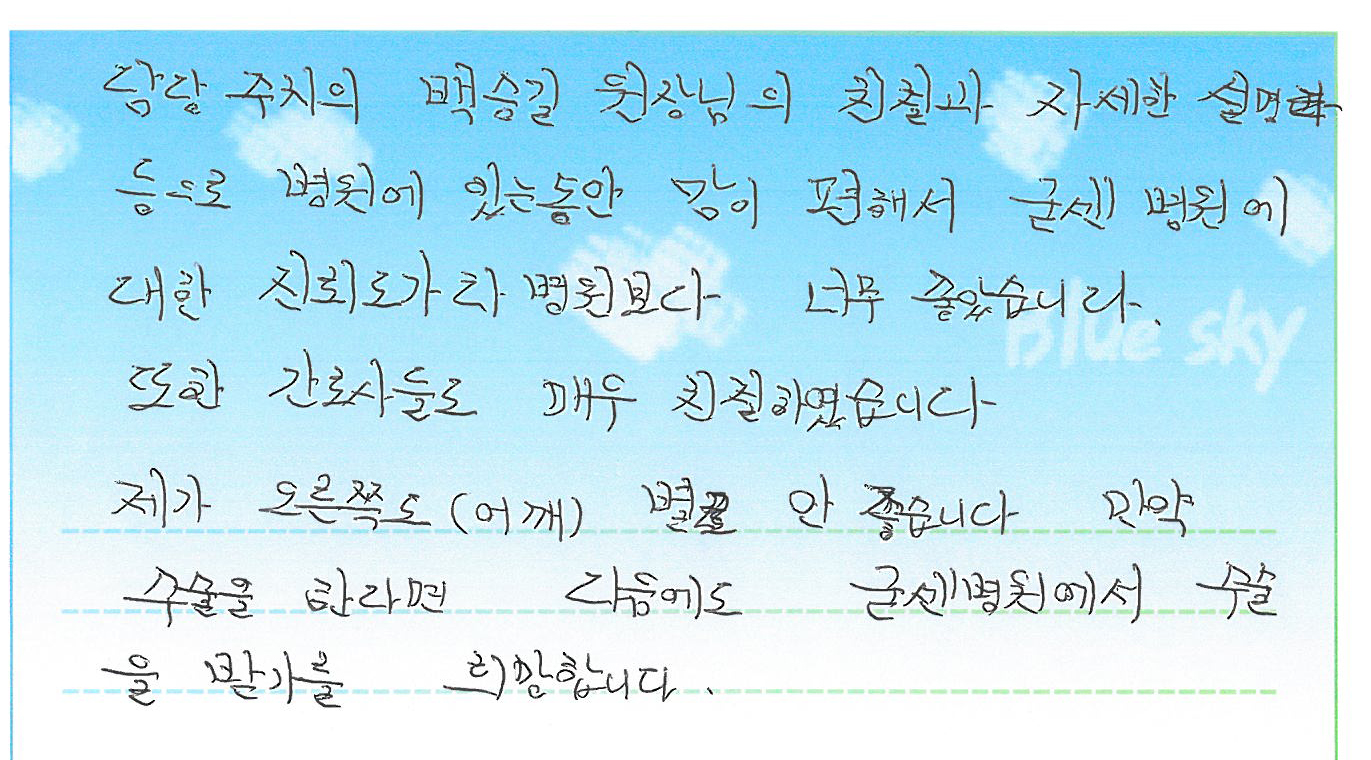 담당 주치의 백승길 원장님의 친절과 자세한 설명
등으로 병원에 있는동안 맘이 편해서 굳센 병원에
대한 신뢰도가 타 병원보다 너무 좋았습니다.
Blue sky
또한 간호사들도 매우 친절하였습니다
제가 오른쪽도 (어깨) 별로 안 좋습니다 만약
수술을 한다면 다음에도 굳센병원에서 수술
을 받기를 희망합니다.